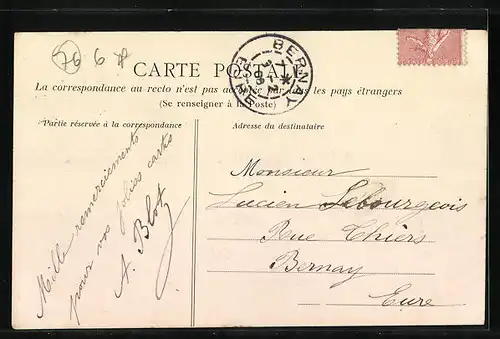 76 6
CARTE POSTALE
La correspondance au recto n'est pas acceptée par tous les pays étrangers
(Se renseigner à la Poste)
BERNAY
EURE
Partie réservée à la correspondance
Adresse du destinataire
Mille remerciements
pour vos jolies cartes
A. Blot
Monsieur
Lucien Lebourgeois
Rue Thiers
Bernay
Eure